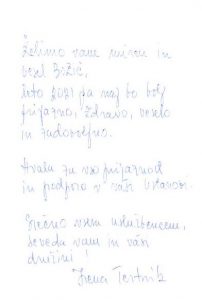 Želimo vam miren in
vesel Božič,
leto 2021 pa naj bo bolj
prijazno, zdravo, veselo
in zadovoljno.
Hvala za vso prijaznost
in podporo v vaši ustanovi.
Srečno vsem uslužbencem,
seveda vam in vaši
družini!
Irena Tertnik